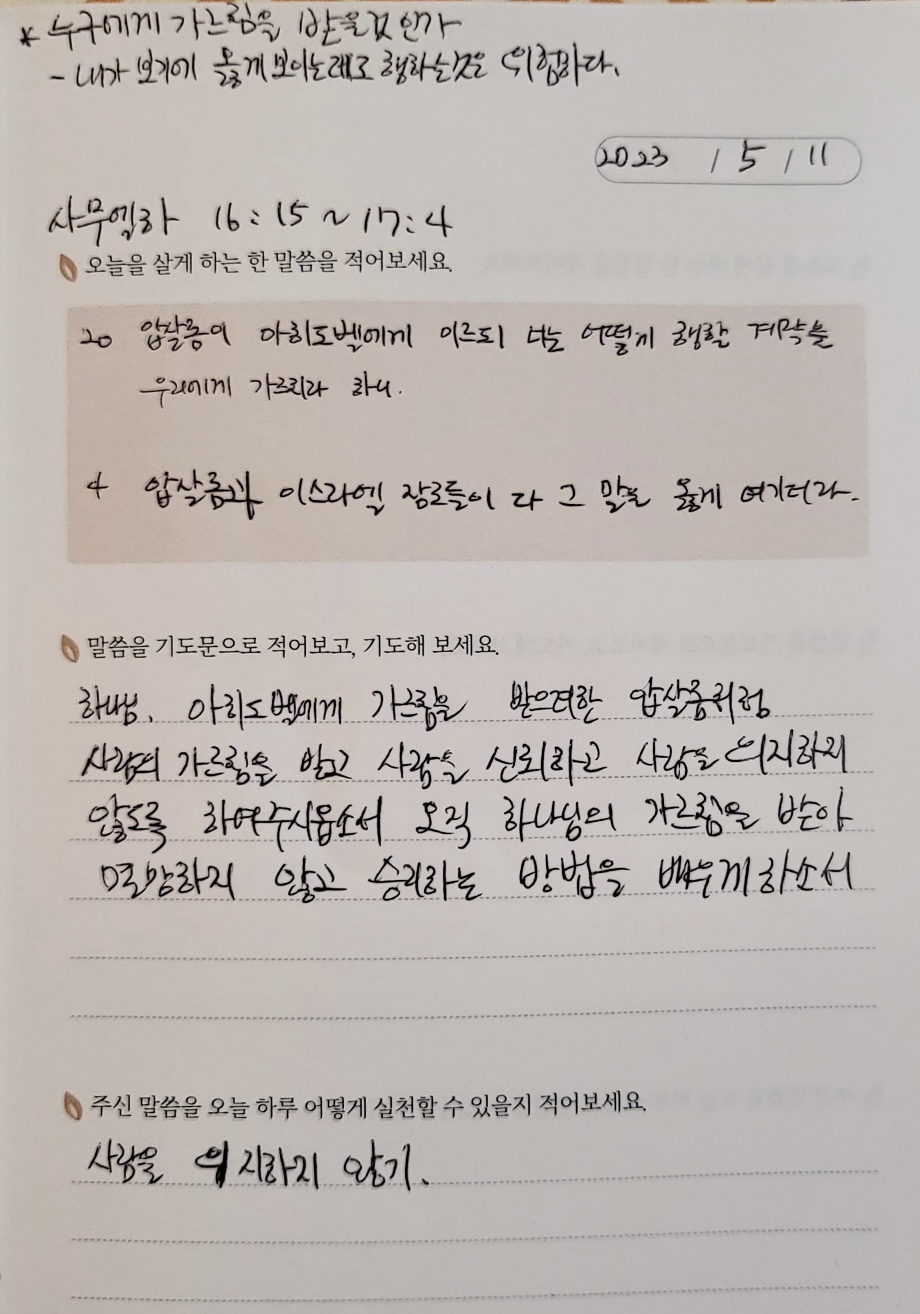 * 누구에게 가르침을 받을것인가
- 내가 보기에 옳게 보이는데로 행하는것은 위험하다.
2023 / 5 / 11
사무엘하 16:15 ~ 17:4
오늘을 살게 하는 한 말씀을 적어보세요.
20 압살롬이 아히도벨에게 이르되 너는 어떻게 행할 계략을
우리에게 가르치라 하니.
4 압살롬과 이스라엘 장로들이 다 그 말을 옳게 여기더라.
말씀을 기도문으로 적어보고, 기도해 보세요.
하나님, 아히도벨에게 가르침을 받으려한 압살롬처럼
사람의 가르침을 받고 사람을 신뢰하고 사람을 의지하지
않도록 하여주시옵소서 오직 하나님의 가르침을 받아
멸망하지 않고 승리하는 방법을 배우게하소서
주신 말씀을 오늘 하루 어떻게 실천할 수 있을지 적어보세요.
사람을 의지하지 않기.